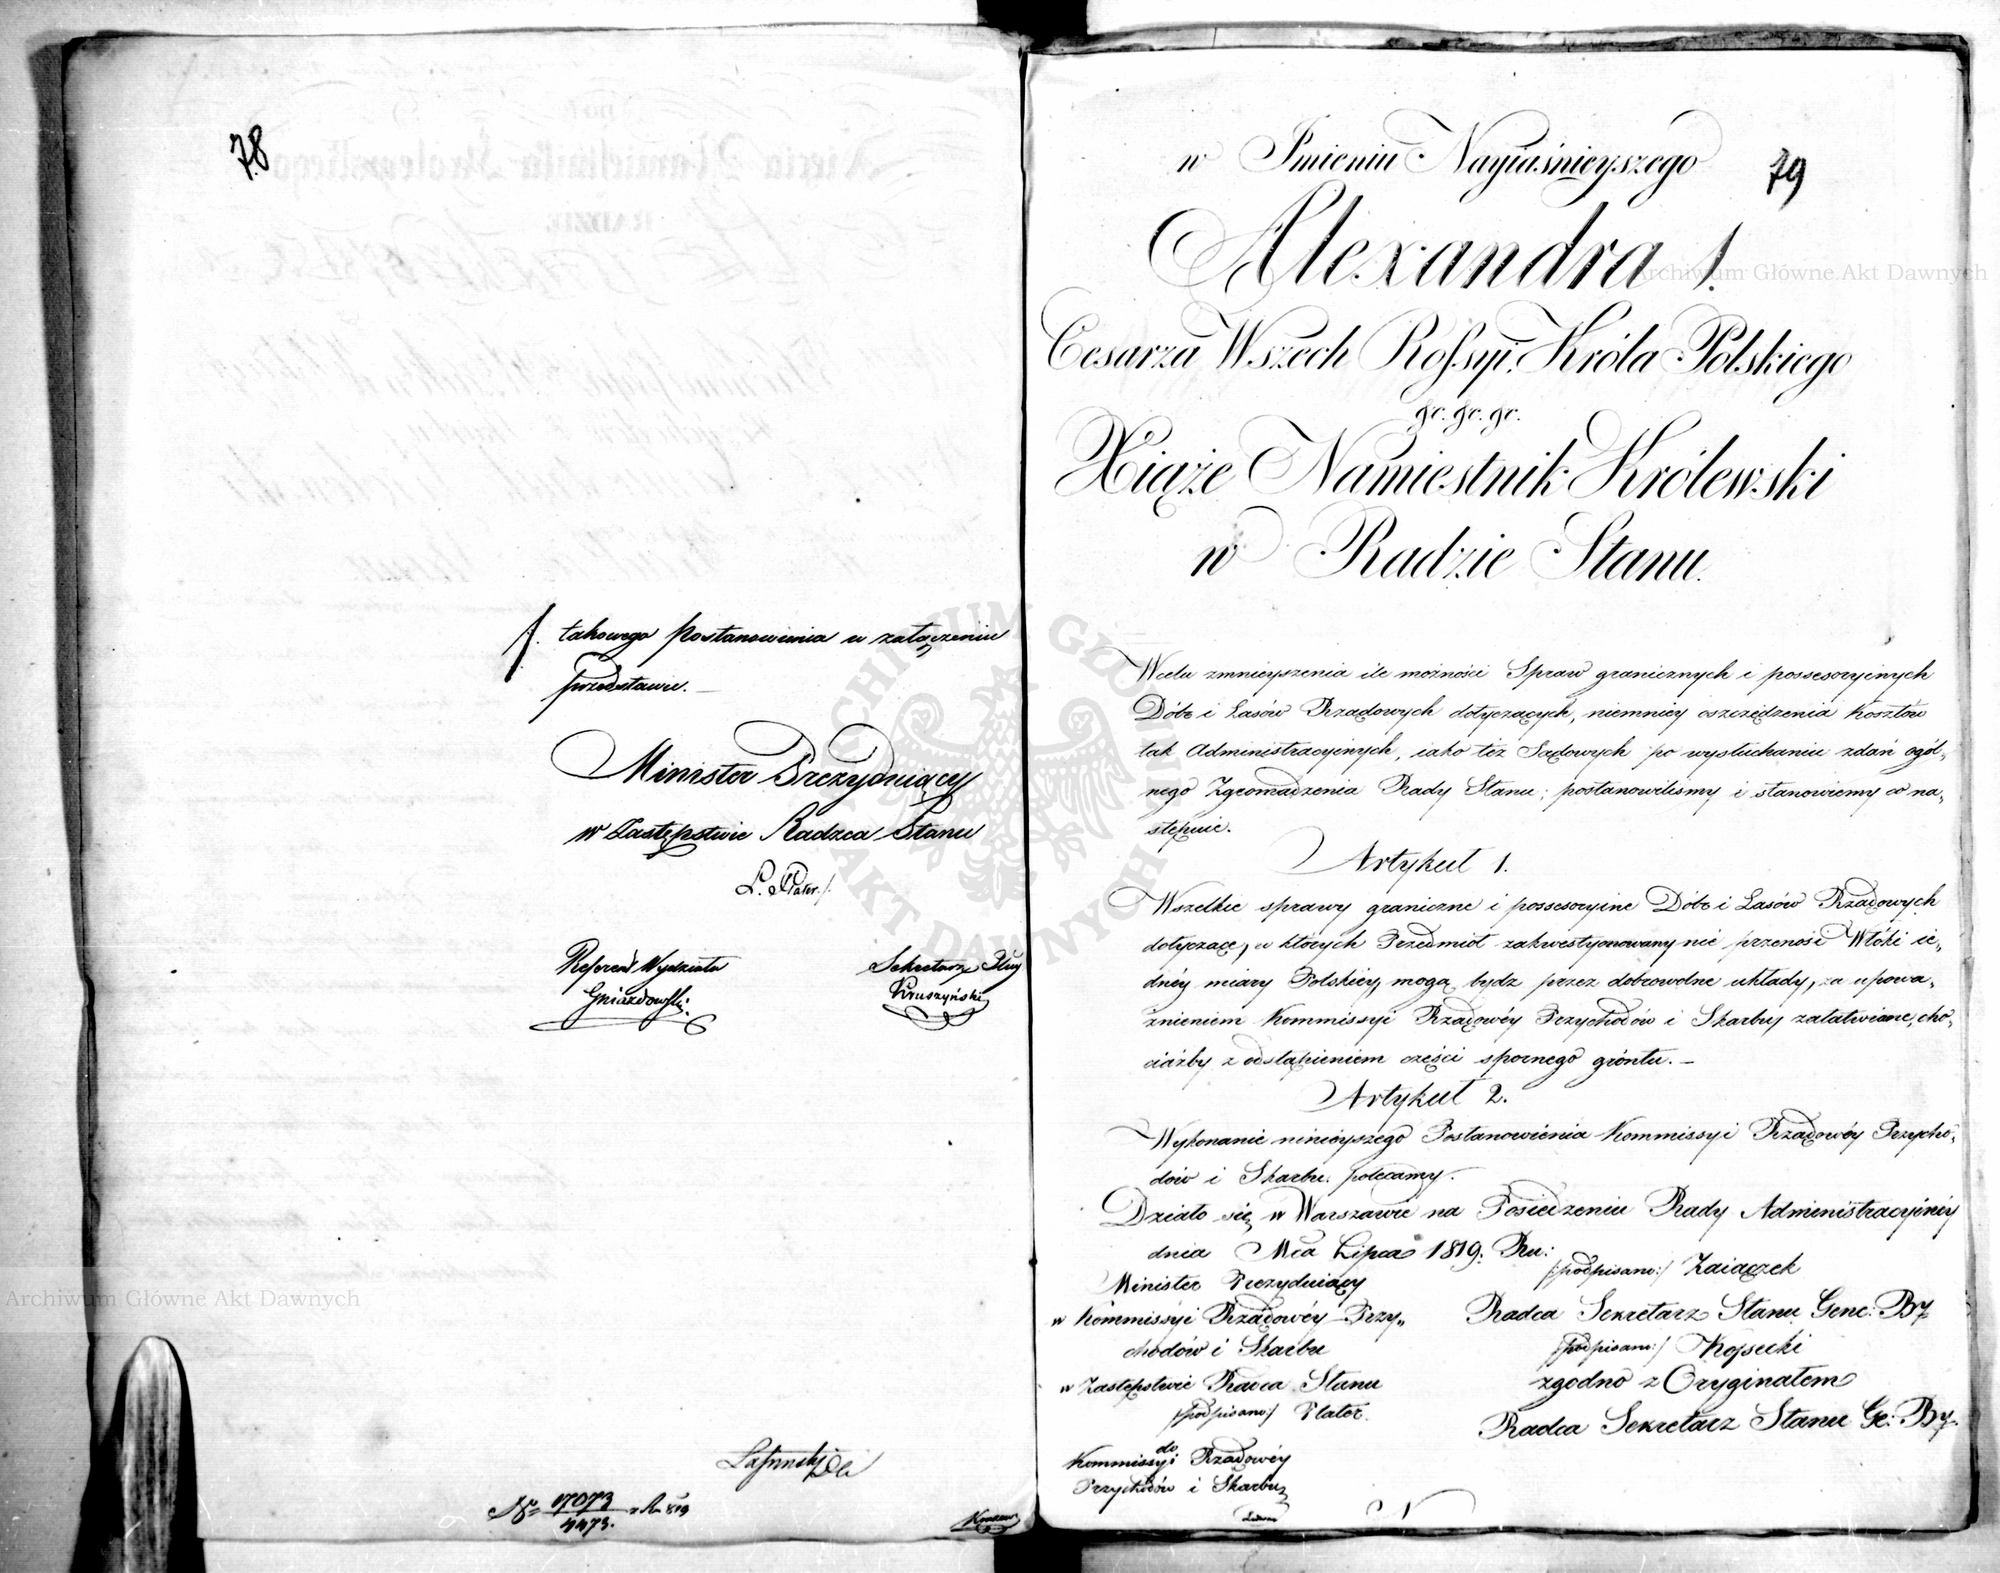 78
takowego postanowienia w załączeniu
przedstawić. —
Minister Prezyduiący
w Zastępstwie Radzca Stanu
L. Plater./.
Referent Wydziału
Gniazdowski
Sekretarz Dług
Kruszyński
No 17073/4473. z Ru 819
79
w Imieniu Nayiaśnieyszego
Alexandra I.
Cesarza Wszech Rossyi, Króla Polskiego
&c. &c. &c.
Xiąże Namiestnik Królewski
w Radzie Stanu.
Wcelu zmnieyszenia ile możności Spraw granicznych i possessoryinych
Dóbr i Lasów Rządowych dotyczących, niemniey oszczędzenia Kosztów
tak Administracyinych, iako też Sądowych po wysłuchaniu zdań ogól-
nego Zgromadzenia Rady Stanu; postanowiliśmy i stanowiemy co na-
stępuie.
Artykuł 1.
Wszelkie sprawy graniczne i possessoryine Dóbr i Lasów Rządowych
dotyczące, w których Przedmiot zakwestyonowany nie przenosi Włóki ie-
dnéy miary Polskiey, mogą bydz przez dobrowolne układy, za upowa-
żnieniem Kommissyi Rządowéy Przychodów i Skarbu załatwiane, cho-
ciażby z odstąpieniem części spornego gróntu. —
Artykuł 2.
Wykonanie ninieyszego Postanowienia Kommissyi Rządowéy Przycho-
dów i Skarbu polecamy.
Działo się w Warszawie na Posiedzeniu Rady Administracyiney
dnia Mca Lipca 1819. Ru:
Minister Prezyduiący
w Kommissyi Rządowéy Przy-
chodów i Skarbu
w Zastępstwie Radca Stanu
/podpisano:/ Plater.
/podpisano:/ Zaiączek
Radca Sekretarz Stanu Gene: By:
/podpisano:/ Kossecki
zgodno z Oryginałem
Radca Sekretarz Stanu Ge: By:
do
Kommissyi Rządowéy
Przychodów i Skarbu
Archiwum Główne Akt Dawnych
Archiwum Główne Akt Dawnych
ARCHIWUM GŁÓWNE AKT DAWNYCH